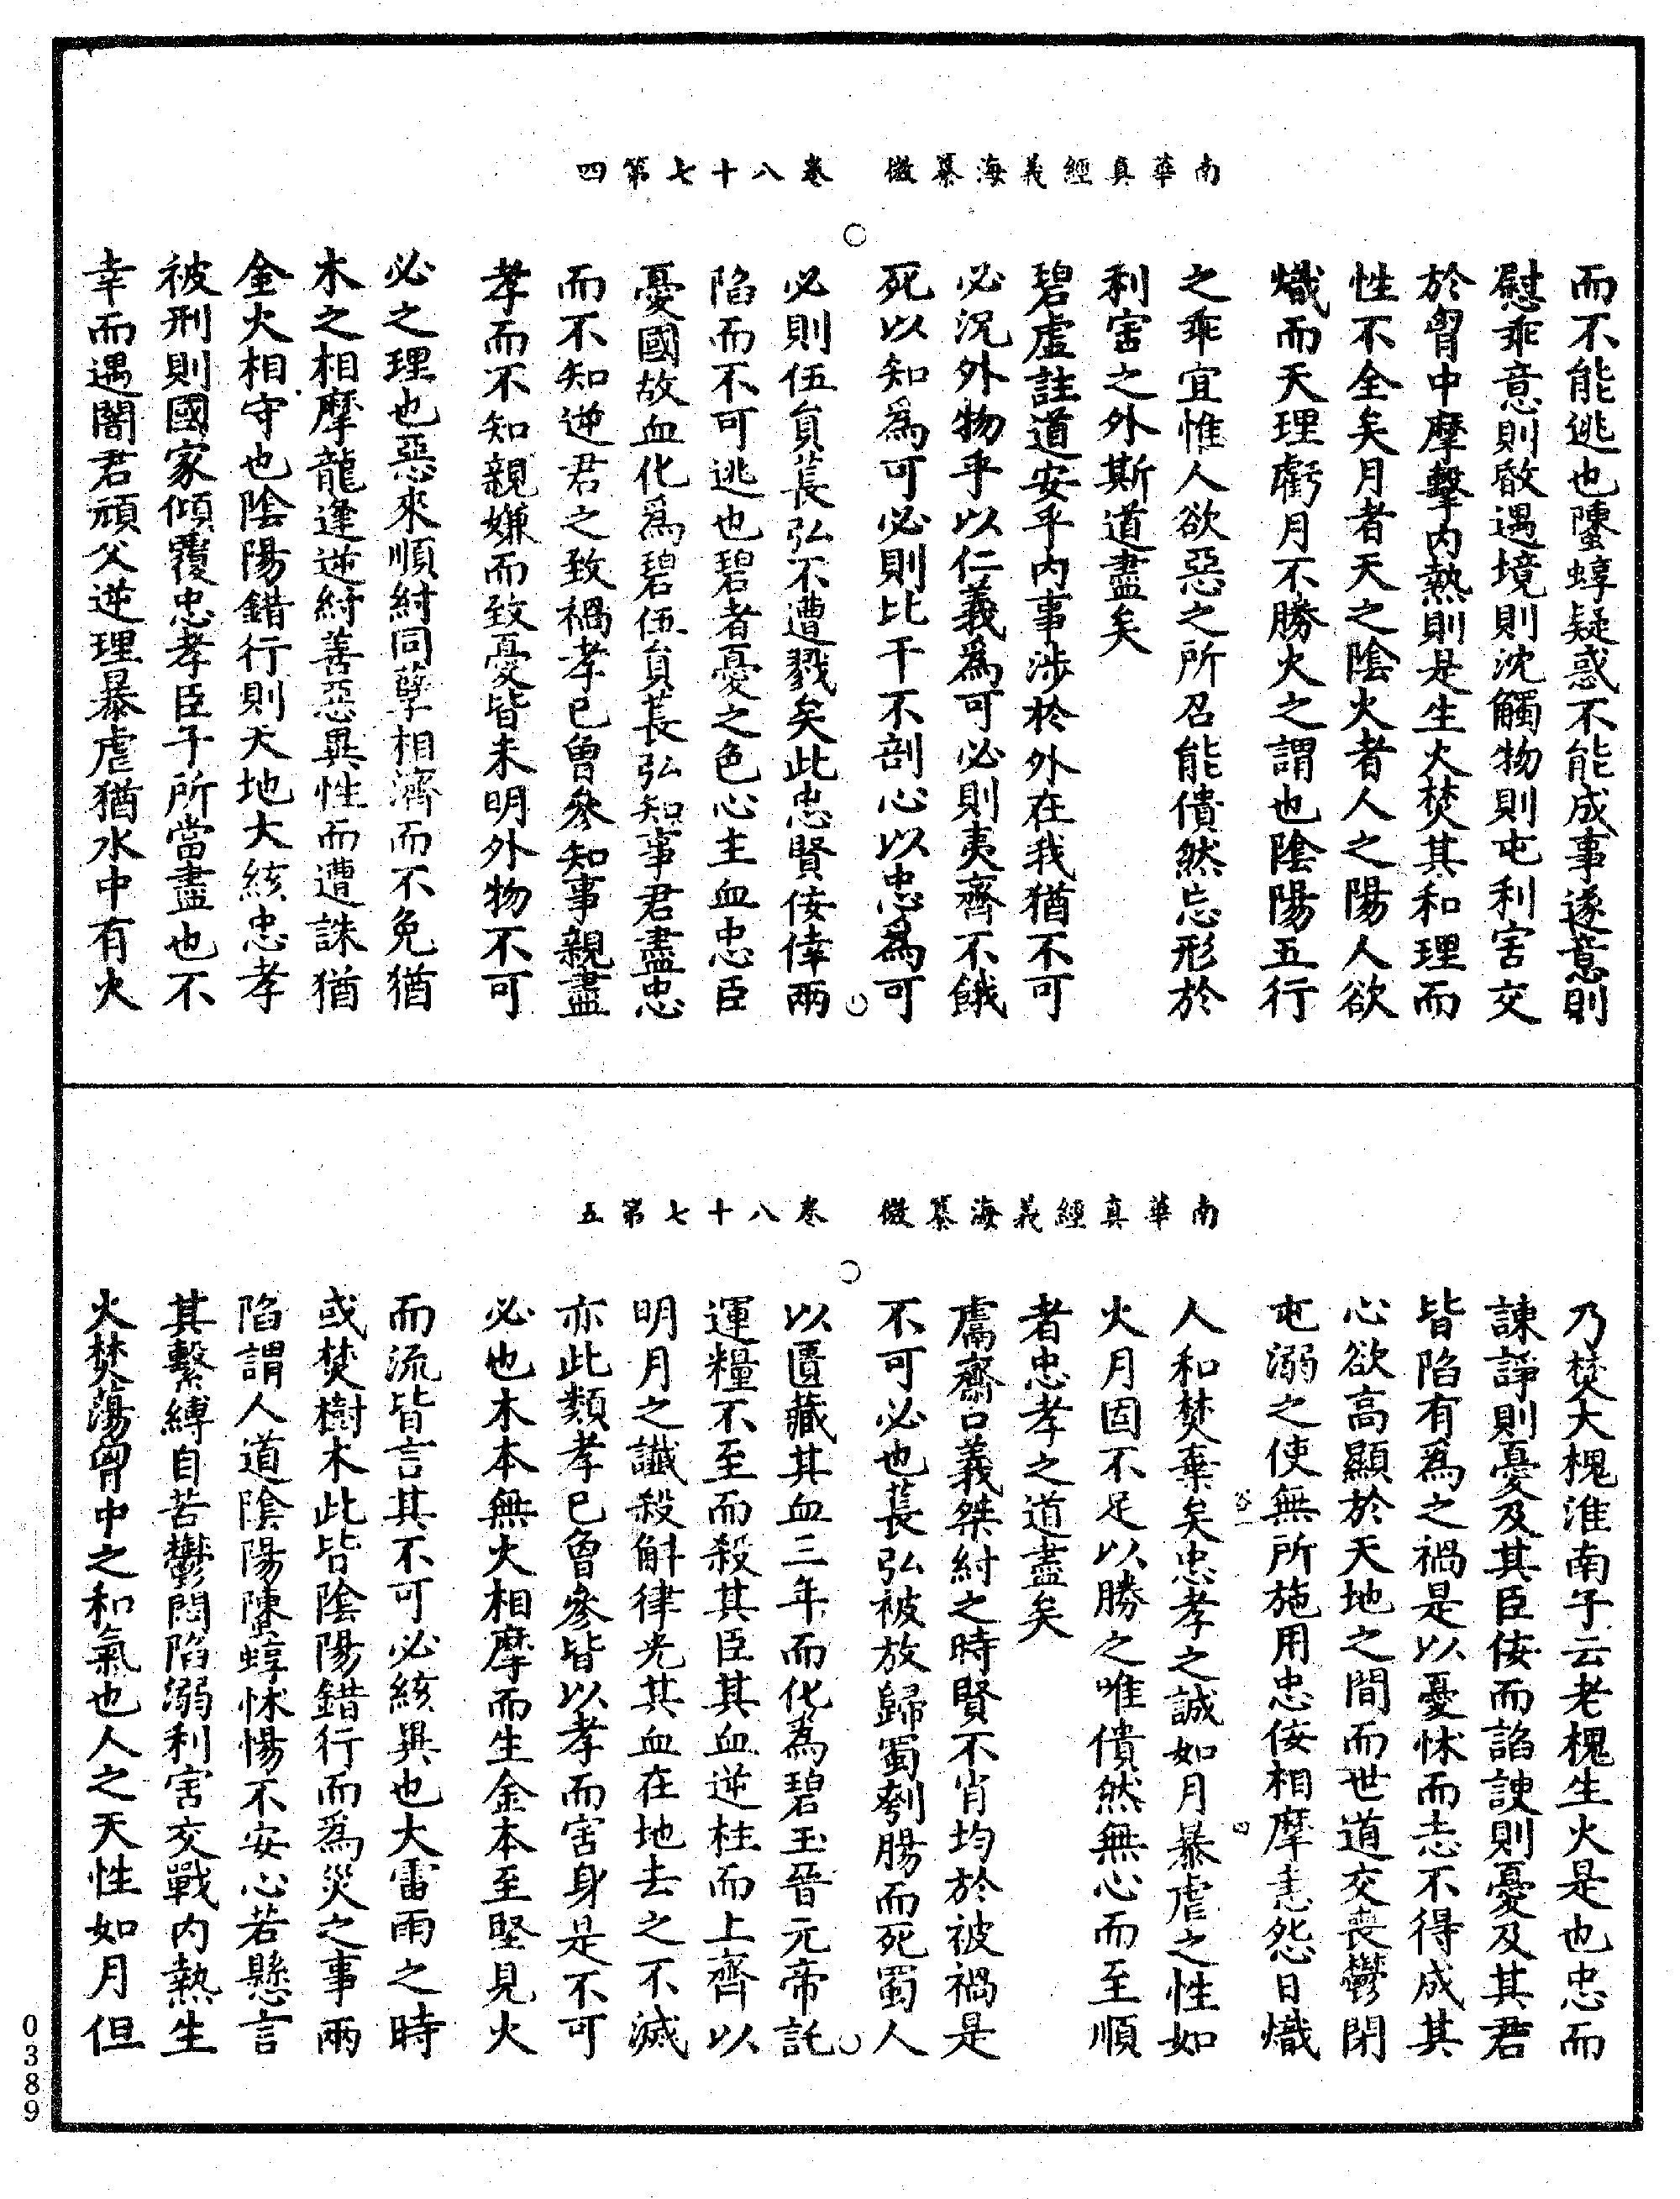 南華真經義海纂微　卷八十七第四
而不能逃也螴蜳疑惑不能成事遂意則
慰乖意則暋遇境則沈觸物則屯利害交
於胷中摩擊內熱則是生火焚其和理而
性不全矣月者天之陰火者人之陽人欲
熾而天理虧月不勝火之謂也陰陽五行
之乖宜惟人欲惡之所召能僓然忘形於
利害之外斯道盡矣
碧虛註道安乎內事涉於外在我猶不可
必況外物乎以仁義為可必則夷齊不餓
死以知為可必則比干不剖心以忠為可
必則伍員萇弘不遭戮矣此忠賢佞倖兩
陷而不可逃也碧者憂之色心主血忠臣
憂國故血化為碧伍員萇弘知事君盡忠
而不知逆君之致禍孝已曾參知事親盡
孝而不知親嫌而致憂皆未明外物不可
必之理也惡來順紂同孽相濟而不免猶
木之相摩龍逢逆紂善惡異性而遭誅猶
金火相守也陰陽錯行則天地大絃忠孝
被刑則國家傾覆忠孝臣子所當盡也不
幸而遇闇君頑父逆理暴虐猶水中有火
南華真經義海纂微　卷八十七第五
乃焚大槐淮南子云老槐生火是也忠而
諫諍則憂及其臣佞而諂諛則憂及其君
皆陷有為之禍是以憂怵而志不得成其
心欲高顯於天地之間而世道交喪鬱閉
屯溺之使無所施用忠佞相摩恚怨日熾
人和焚棄矣忠孝之誠如月暴虐之性如
火月固不足以勝之唯僓然無心而至順
者忠孝之道盡矣
鬳齋口義桀紂之時賢不肖均於被禍是
不可必也萇弘被放歸蜀刳腸而死蜀人
以匱藏其血三年而化為碧玉晉元帝託
運糧不至而殺其臣其血逆柱而上齊以
明月之讖殺斛律光其血在地去之不滅
亦此類孝已曾參皆以孝而害身是不可
必也木本無火相摩而生金本至堅見火
而流皆言其不可必絃異也大雷雨之時
或焚樹木此皆陰陽錯行而為災之事兩
陷謂人道陰陽螴蜳怵惕不安心若懸言
其繫縛自苦鬱悶陷溺利害交戰內熱生
火焚蕩胷中之和氣也人之天性如月但
0389